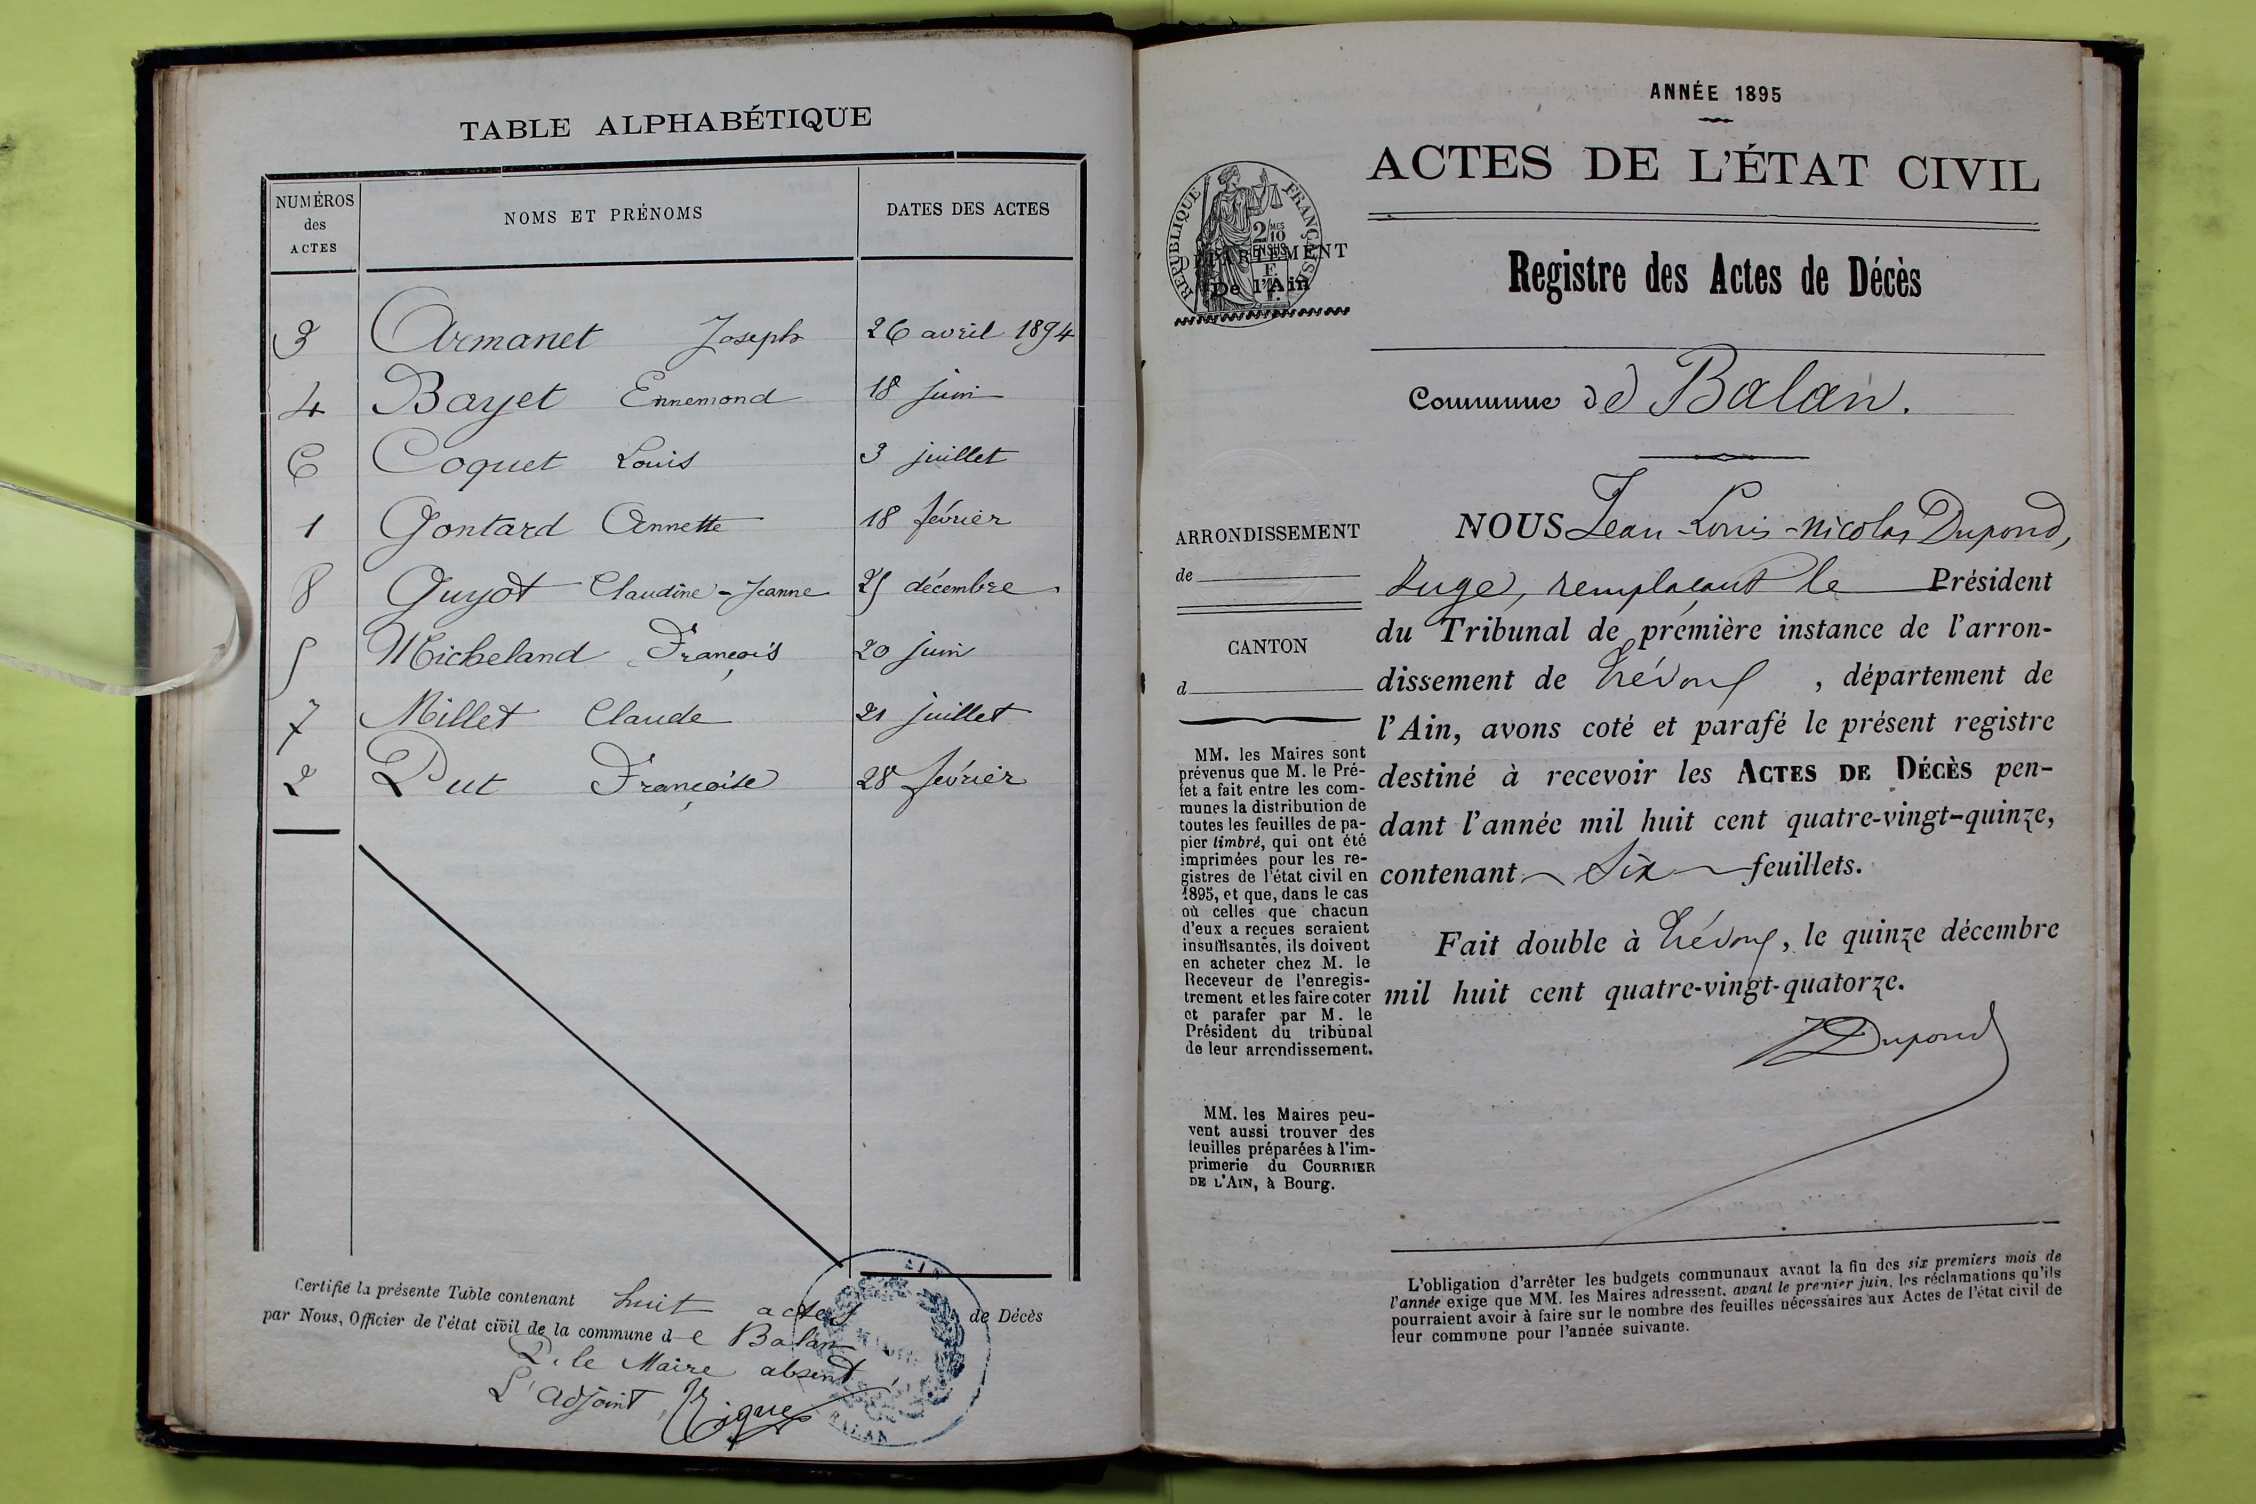 TABLE ALPHABÉTIQUE
NUMÉROS des ACTES
NOMS ET PRÉNOMS
DATES DES ACTES
3 Armanet Joseph 26 avril 1894
4 Bayet Ennemond 18 juin
6 Coquet Louis 3 juillet
1 Gontard Annette 18 février
8 Guyot Claudine-Jeanne 25 décembre
5 Micheland François 20 juin
7 Millet Claude 21 juillet
2 Put Françoise 28 février
Certifié la présente Table contenant huit actes de Décès
par Nous, Officier de l'état civil de la commune de Balan
P. le Maire absent,
L'adjoint,
BALAN
ANNÉE 1895
ACTES DE L'ÉTAT CIVIL
RÉPUBLIQUE FRANÇAISE
2 10
DÉPARTEMENT
De l'Ain
Registre des Actes de Décès
Commune de Balan.
ARRONDISSEMENT
de
CANTON
d
MM. les Maires sont
prévenus que M. le Pré-
fet a fait entre les com-
munes la distribution de
toutes les feuilles de pa-
pier timbré, qui ont été
imprimées pour les re-
gistres de l'état civil en
1895, et que, dans le cas
où celles que chacun
d'eux a reçues seraient
insuffisantes, ils doivent
en acheter chez M. le
Receveur de l'enregis-
trement et les faire coter
et parafer par M. le
Président du tribunal
de leur arrondissement.
MM. les Maires peu-
vent aussi trouver des
feuilles préparées à l'im-
primerie du COURRIER
DE L'AIN, à Bourg.
NOUS Jean-Louis-Nicolas Dupond,
Juge, remplaçant le Président
du Tribunal de première instance de l'arron-
dissement de Trévoux, département de
l'Ain, avons coté et parafé le présent registre
destiné à recevoir les ACTES DE DÉCÈS pen-
dant l'année mil huit cent quatre-vingt-quinze,
contenant Six feuillets.
Fait double à Trévoux, le quinze décembre
mil huit cent quatre-vingt-quatorze.
Dupond
L'obligation d'arrêter les budgets communaux avant la fin des six premiers mois de
l'année exige que MM. les Maires adressent, avant le premier juin, les réclamations qu'ils
pourraient avoir à faire sur le nombre des feuilles nécessaires aux Actes de l'état civil de
leur commune pour l'année suivante.